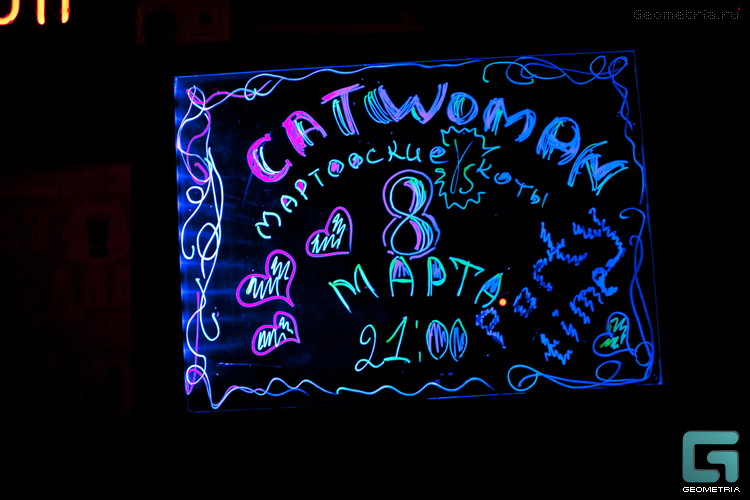 Geometria.ru
CATWOMAN
МАРТОВСКИЕ VS КОТЫ
8
МАРТА
21:00
GEOMETRIA